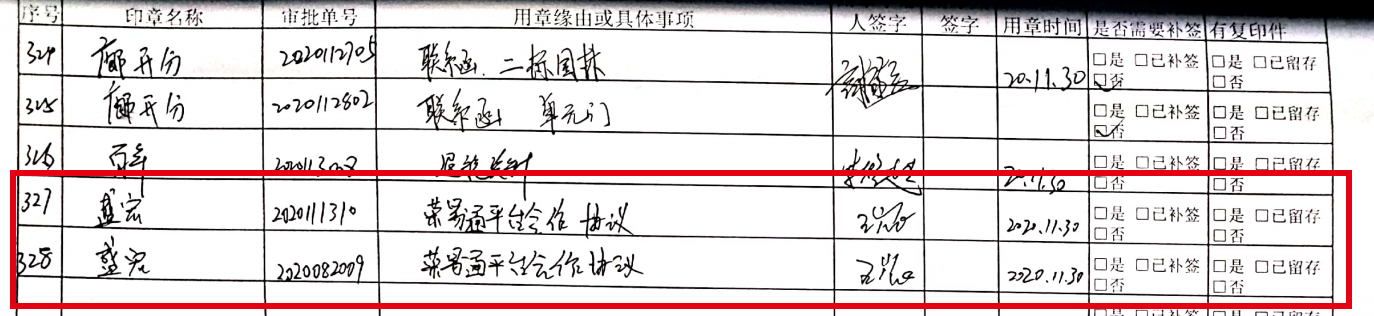 序号 印章名称 审批单号 用章缘由或具体事项 人签字 签字 用章时间 是否需要补签 有复印件
324 廊开分 2020112705 联系函 二标园林 20.11.30 □是 □已补签 □是 □已留存
□否 □否
325 廊开分 2020112802 联系函 单元门 □是 □已补签 □是 □已留存
□否 □否
326 百年 20.11.30 □是 □已补签 □是 □已留存
□否 □否
327 盛宏 2020111310 荣易通平台合作协议 2020.11.30 □是 □已补签 □是 □已留存
□否 □否
328 盛宏 2020082009 荣易通平台合作协议 2020.11.30 □是 □已补签 □是 □已留存
□否 □否